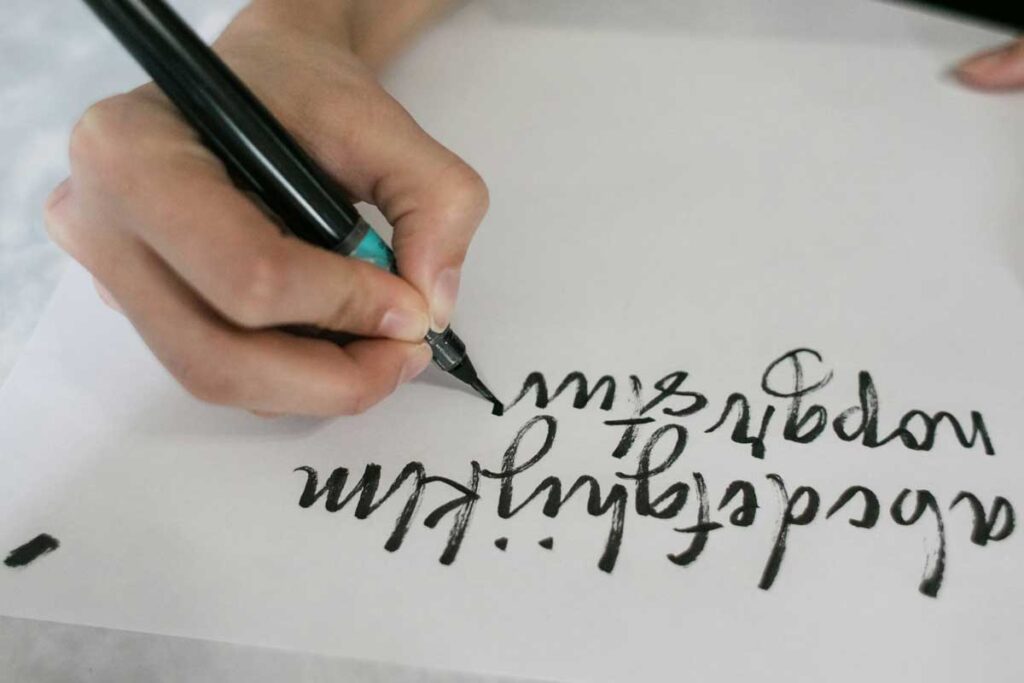 abcdefghijklm
nopqrstuvw